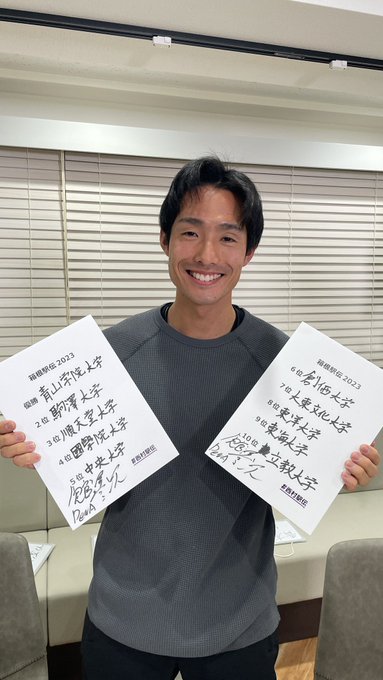 箱根駅伝2023
優勝 青山学院大学
2位 駒澤大学
3位 順天堂大学
4位 國學院大学
5位 中央大学
DeNA
西村駅伝
箱根駅伝2023
6位 創価大学
7位 大東文化大学
8位 東洋大学
9位 東海大学
10位 立教大学
DeNA
西村駅伝